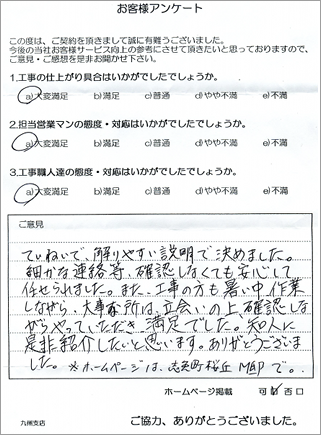 お客様アンケート
この度は、ご契約を頂きまして誠に有難うございました。
今後の当社お客様サービス向上の参考にさせて頂きたいと思っておりますので、
ご意見・ご感想を是非お聞かせ下さい。
1.工事の仕上がり具合はいかがでしたでしょうか。
a)大変満足 b)満足 c)普通 d)やや不満 e)不満
2.担当営業マンの態度・対応はいかがでしたでしょうか。
a)大変満足 b)満足 c)普通 d)やや不満 e)不満
3.工事職人達の態度・対応はいかがでしたでしょうか。
a)大変満足 b)満足 c)普通 d)やや不満 e)不満
ご意見
ていねいで、解りやすい説明で決めました。
細かな連絡等、確認しなくても安心して
任せられました。また、工事の方も暑い中作業
しながら、大事な所は、立会いの上確認しな
がらやっていただき、満足でした。知人に
是非紹介したいと思います。ありがとうございま
した。※ホームページは、志免町桜丘 M邸で。
ホームページ掲載 可 否 口
九州支店
ご協力、ありがとうございました。